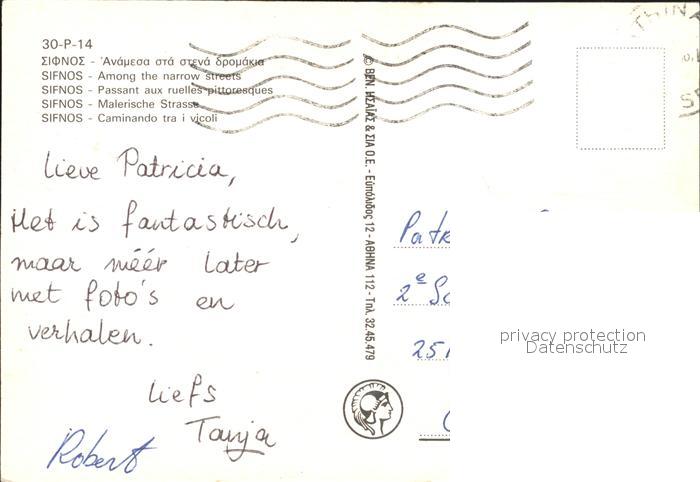 30-P-14
ΣΙΦΝΟΣ - Ἀνάμεσα στά στενά δρομάκια
SIFNOS - Among the narrow streets
SIFNOS - Passant aux ruelles pittoresques
SIFNOS - Malerische Strasse
SIFNOS - Caminando tra i vicoli
Lieve Patricia,
Het is fantastisch,
maar méér later
met foto's en
verhalen.
Liefs
Tanja
Robert
© ΒΕΝ. ΗΣΑΪΑΣ & ΣΙΑ Ο.Ε. - Εὐπόλιδος 12 - ΑΘΗΝΑ 112 - Τηλ. 32.45.479
Patr
2e Sc
251
privacy protection
Datenschutz